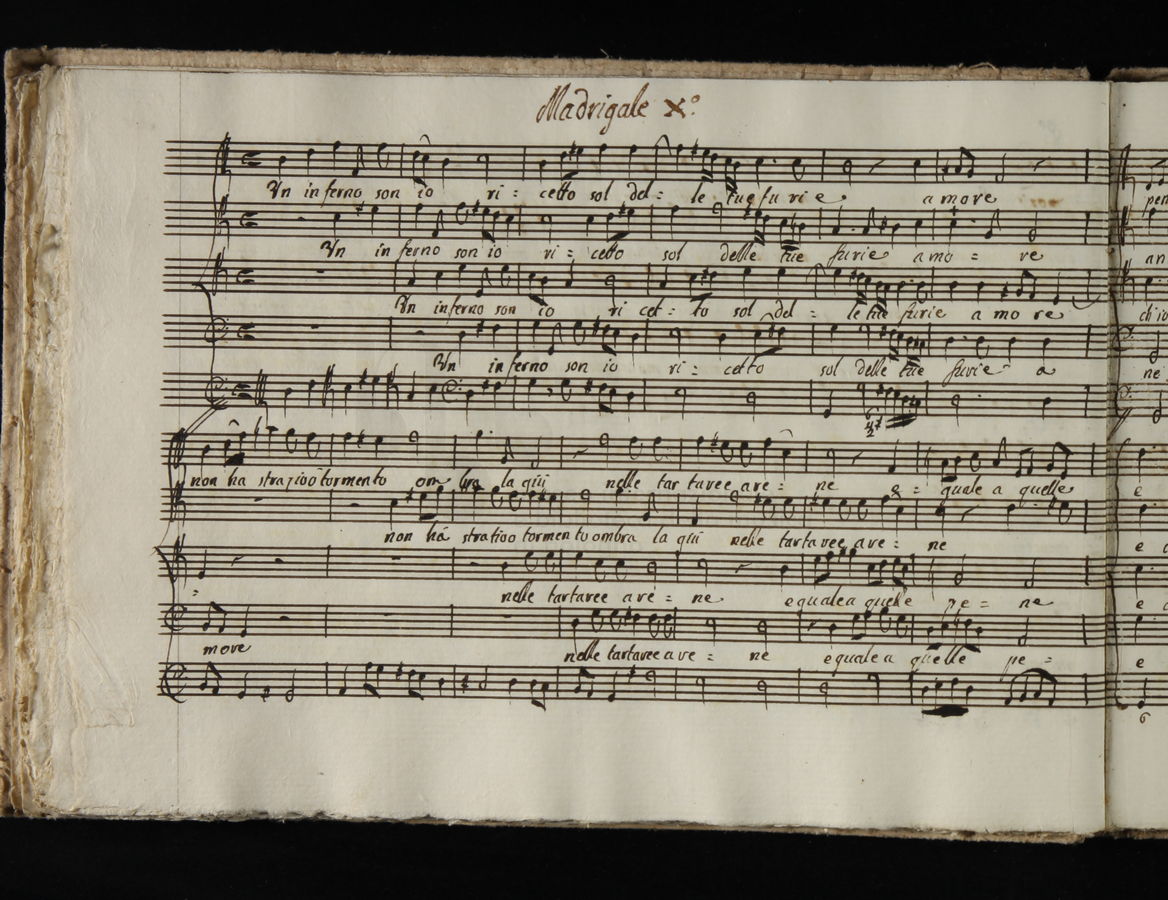 Madrigale X.º
Un inferno son io ri = cetto sol del = le tue furie amore
Un inferno son io ri = cetto sol delle tue furie amo = re
Un inferno son io ri cet = to sol del = le tue furie amore
Un inferno son io ri = cetto sol delle tue furie a
non ha stratioò tormento ombra la qui nelle tartaree are = ne e = guale a quelle
non há stratioo tormento ombra la qui nelle tartaree are = ne
nelle tartaree are = ne eguale a quelle pe = ne
more
nelle tartaree are = ne eguale a quelle pe =
pen
an
ch'io
ne
e
e
e
e
6